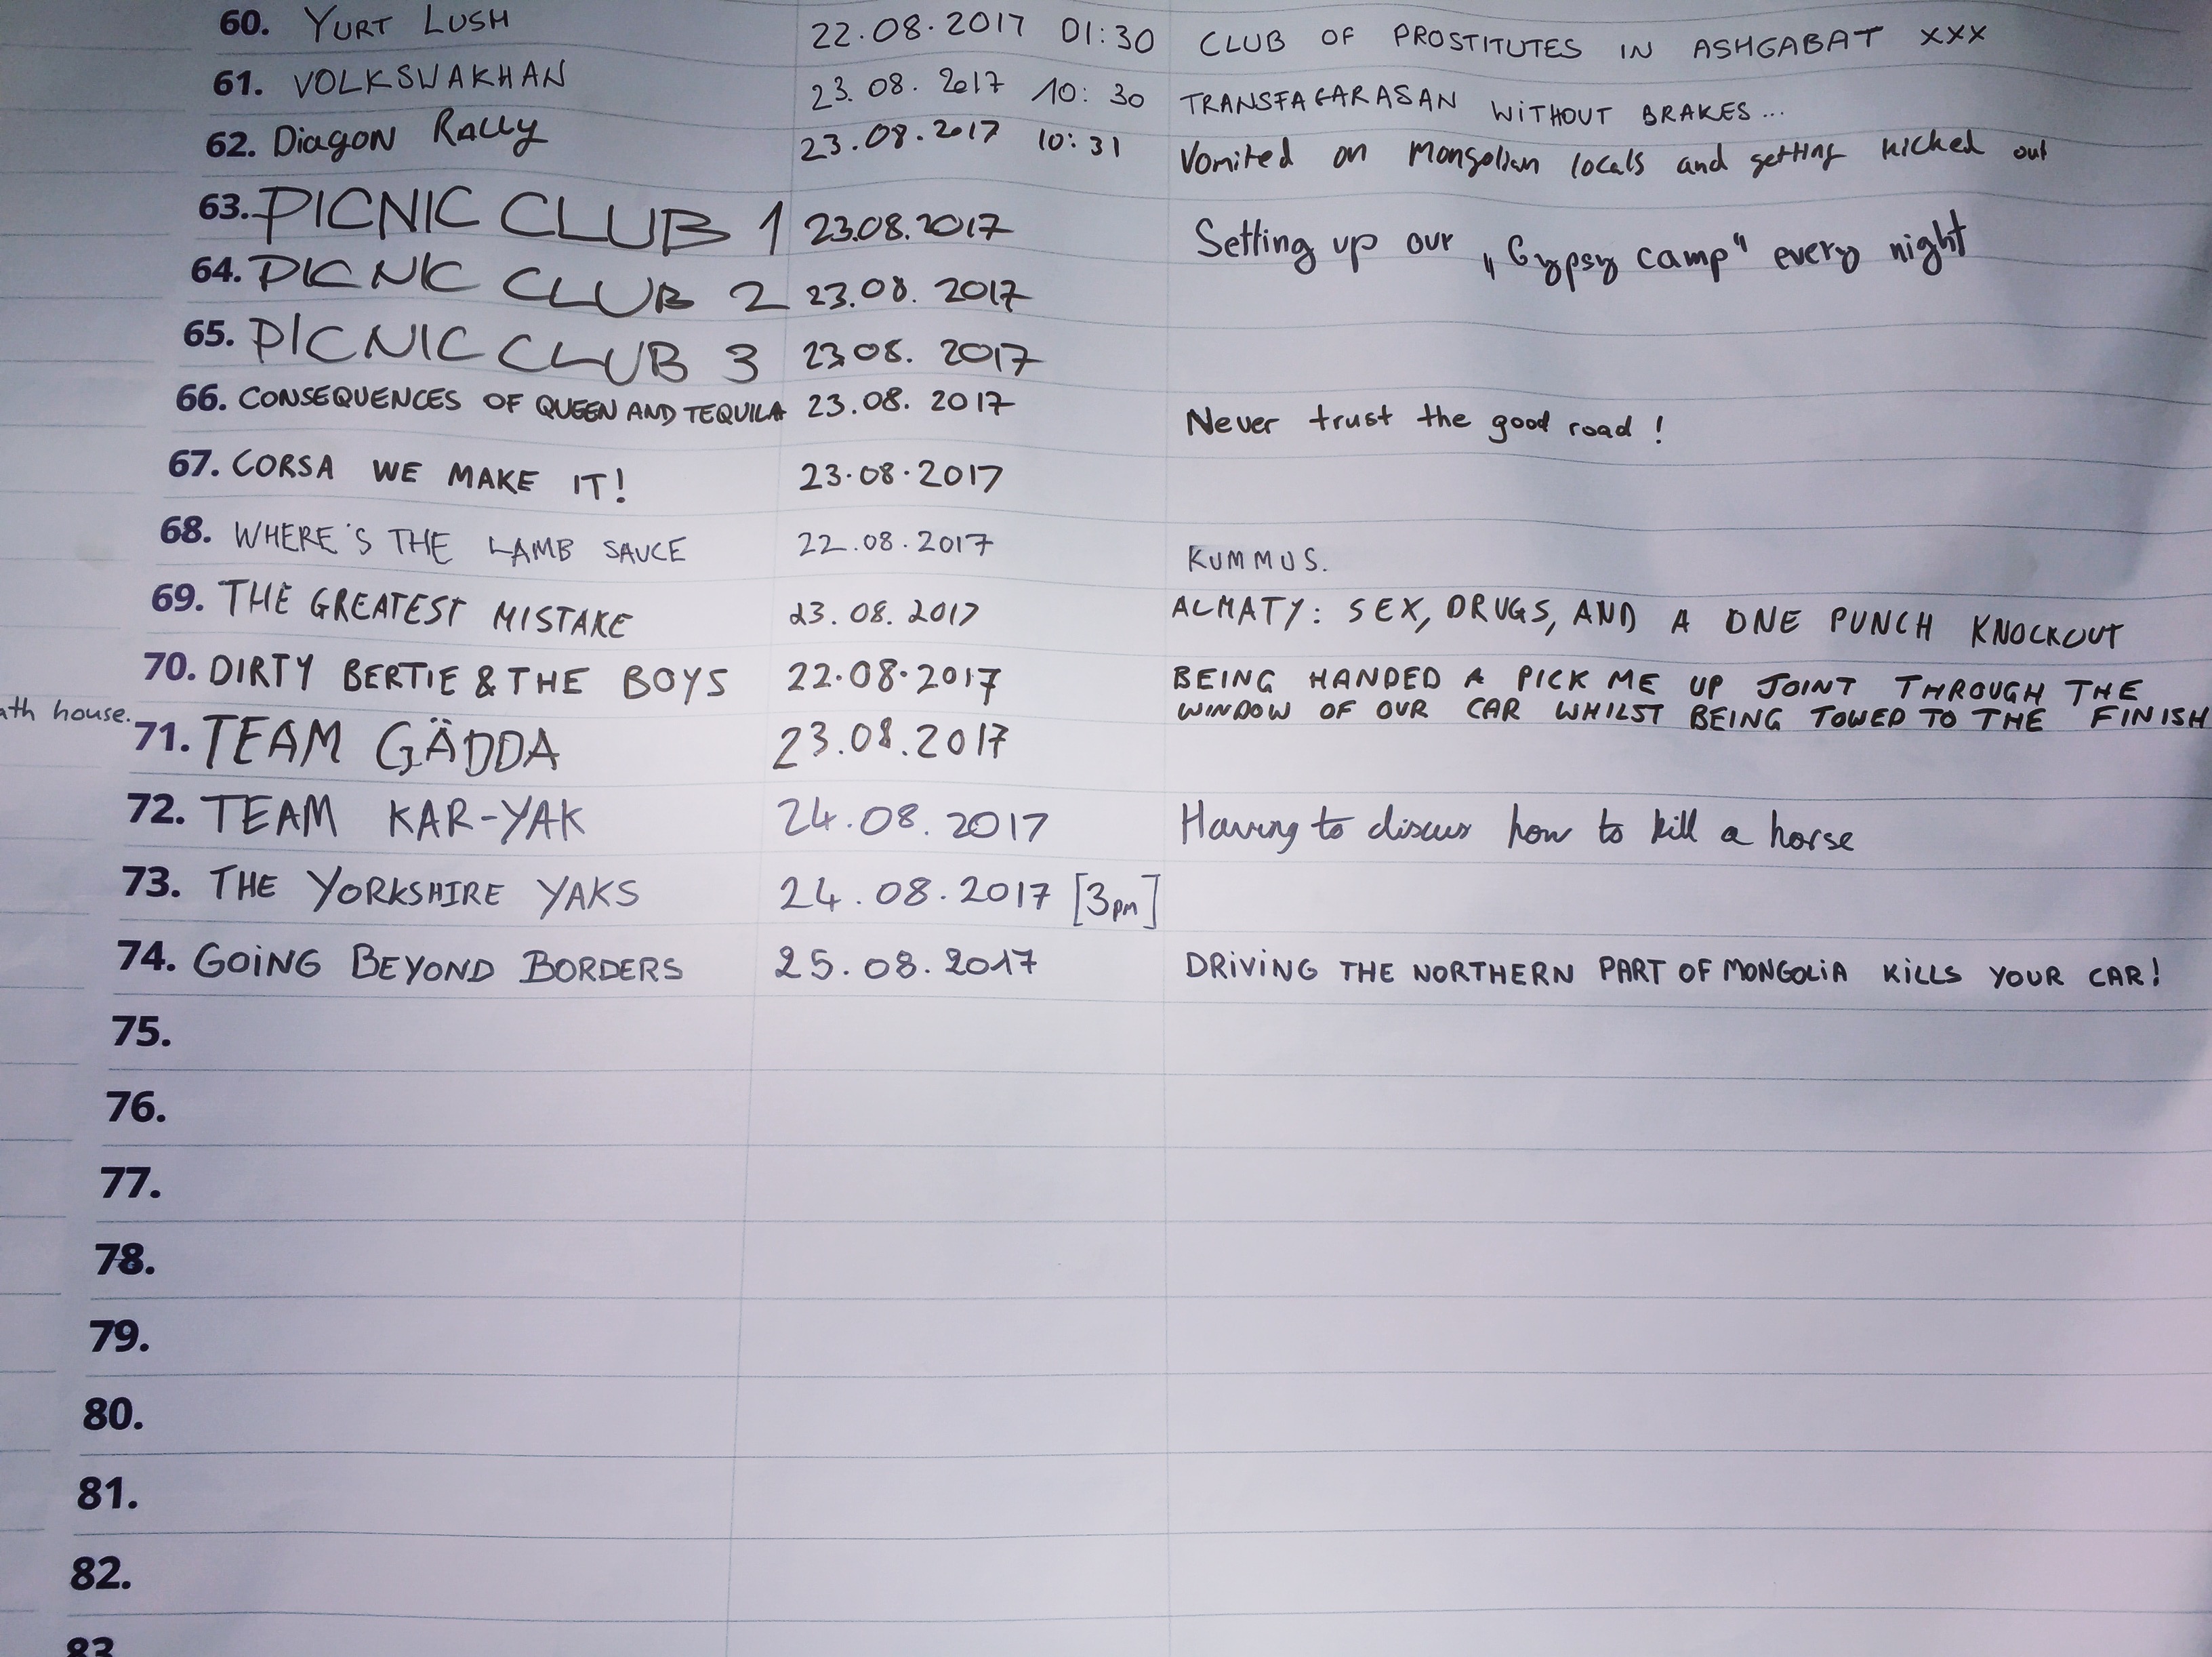 60. YURT LUSH 22.08.2017 01:30 CLUB OF PROSTITUTES IN ASHGABAT XXX
61. VOLKSWAKHAN 23.08.2017 10:30 TRANSFAGARASAN WITHOUT BRAKES...
62. Diagon Rally 23.08.2017 10:31 Vomited on Mongolian locals and getting kicked out
63. PICNIC CLUB 1 23.08.2017 Setting up our „Gypsy camp“ every night
64. PICNIC CLUB 2 23.08.2017
65. PICNIC CLUB 3 23.08.2017
66. CONSEQUENCES OF QUEEN AND TEQUILA 23.08.2017 Never trust the good road!
67. CORSA WE MAKE IT! 23.08.2017
68. WHERE'S THE LAMB SAUCE 22.08.2017 KUMMUS.
69. THE GREATEST MISTAKE 23.08.2017 ALMATY: SEX, DRUGS, AND A ONE PUNCH KNOCKOUT
70. DIRTY BERTIE & THE BOYS 22.08.2017 BEING HANDED A PICK ME UP JOINT THROUGH THE
WINDOW OF OUR CAR WHILST BEING TOWED TO THE FINISH
house.
71. TEAM GÄDDA 23.08.2017
72. TEAM KAR-YAK 24.08.2017 Having to discuss how to kill a horse
73. THE YORKSHIRE YAKS 24.08.2017 [3pm]
74. GOING BEYOND BORDERS 25.08.2017 DRIVING THE NORTHERN PART OF MONGOLIA KILLS YOUR CAR!
75.
76.
77.
78.
79.
80.
81.
82.
83